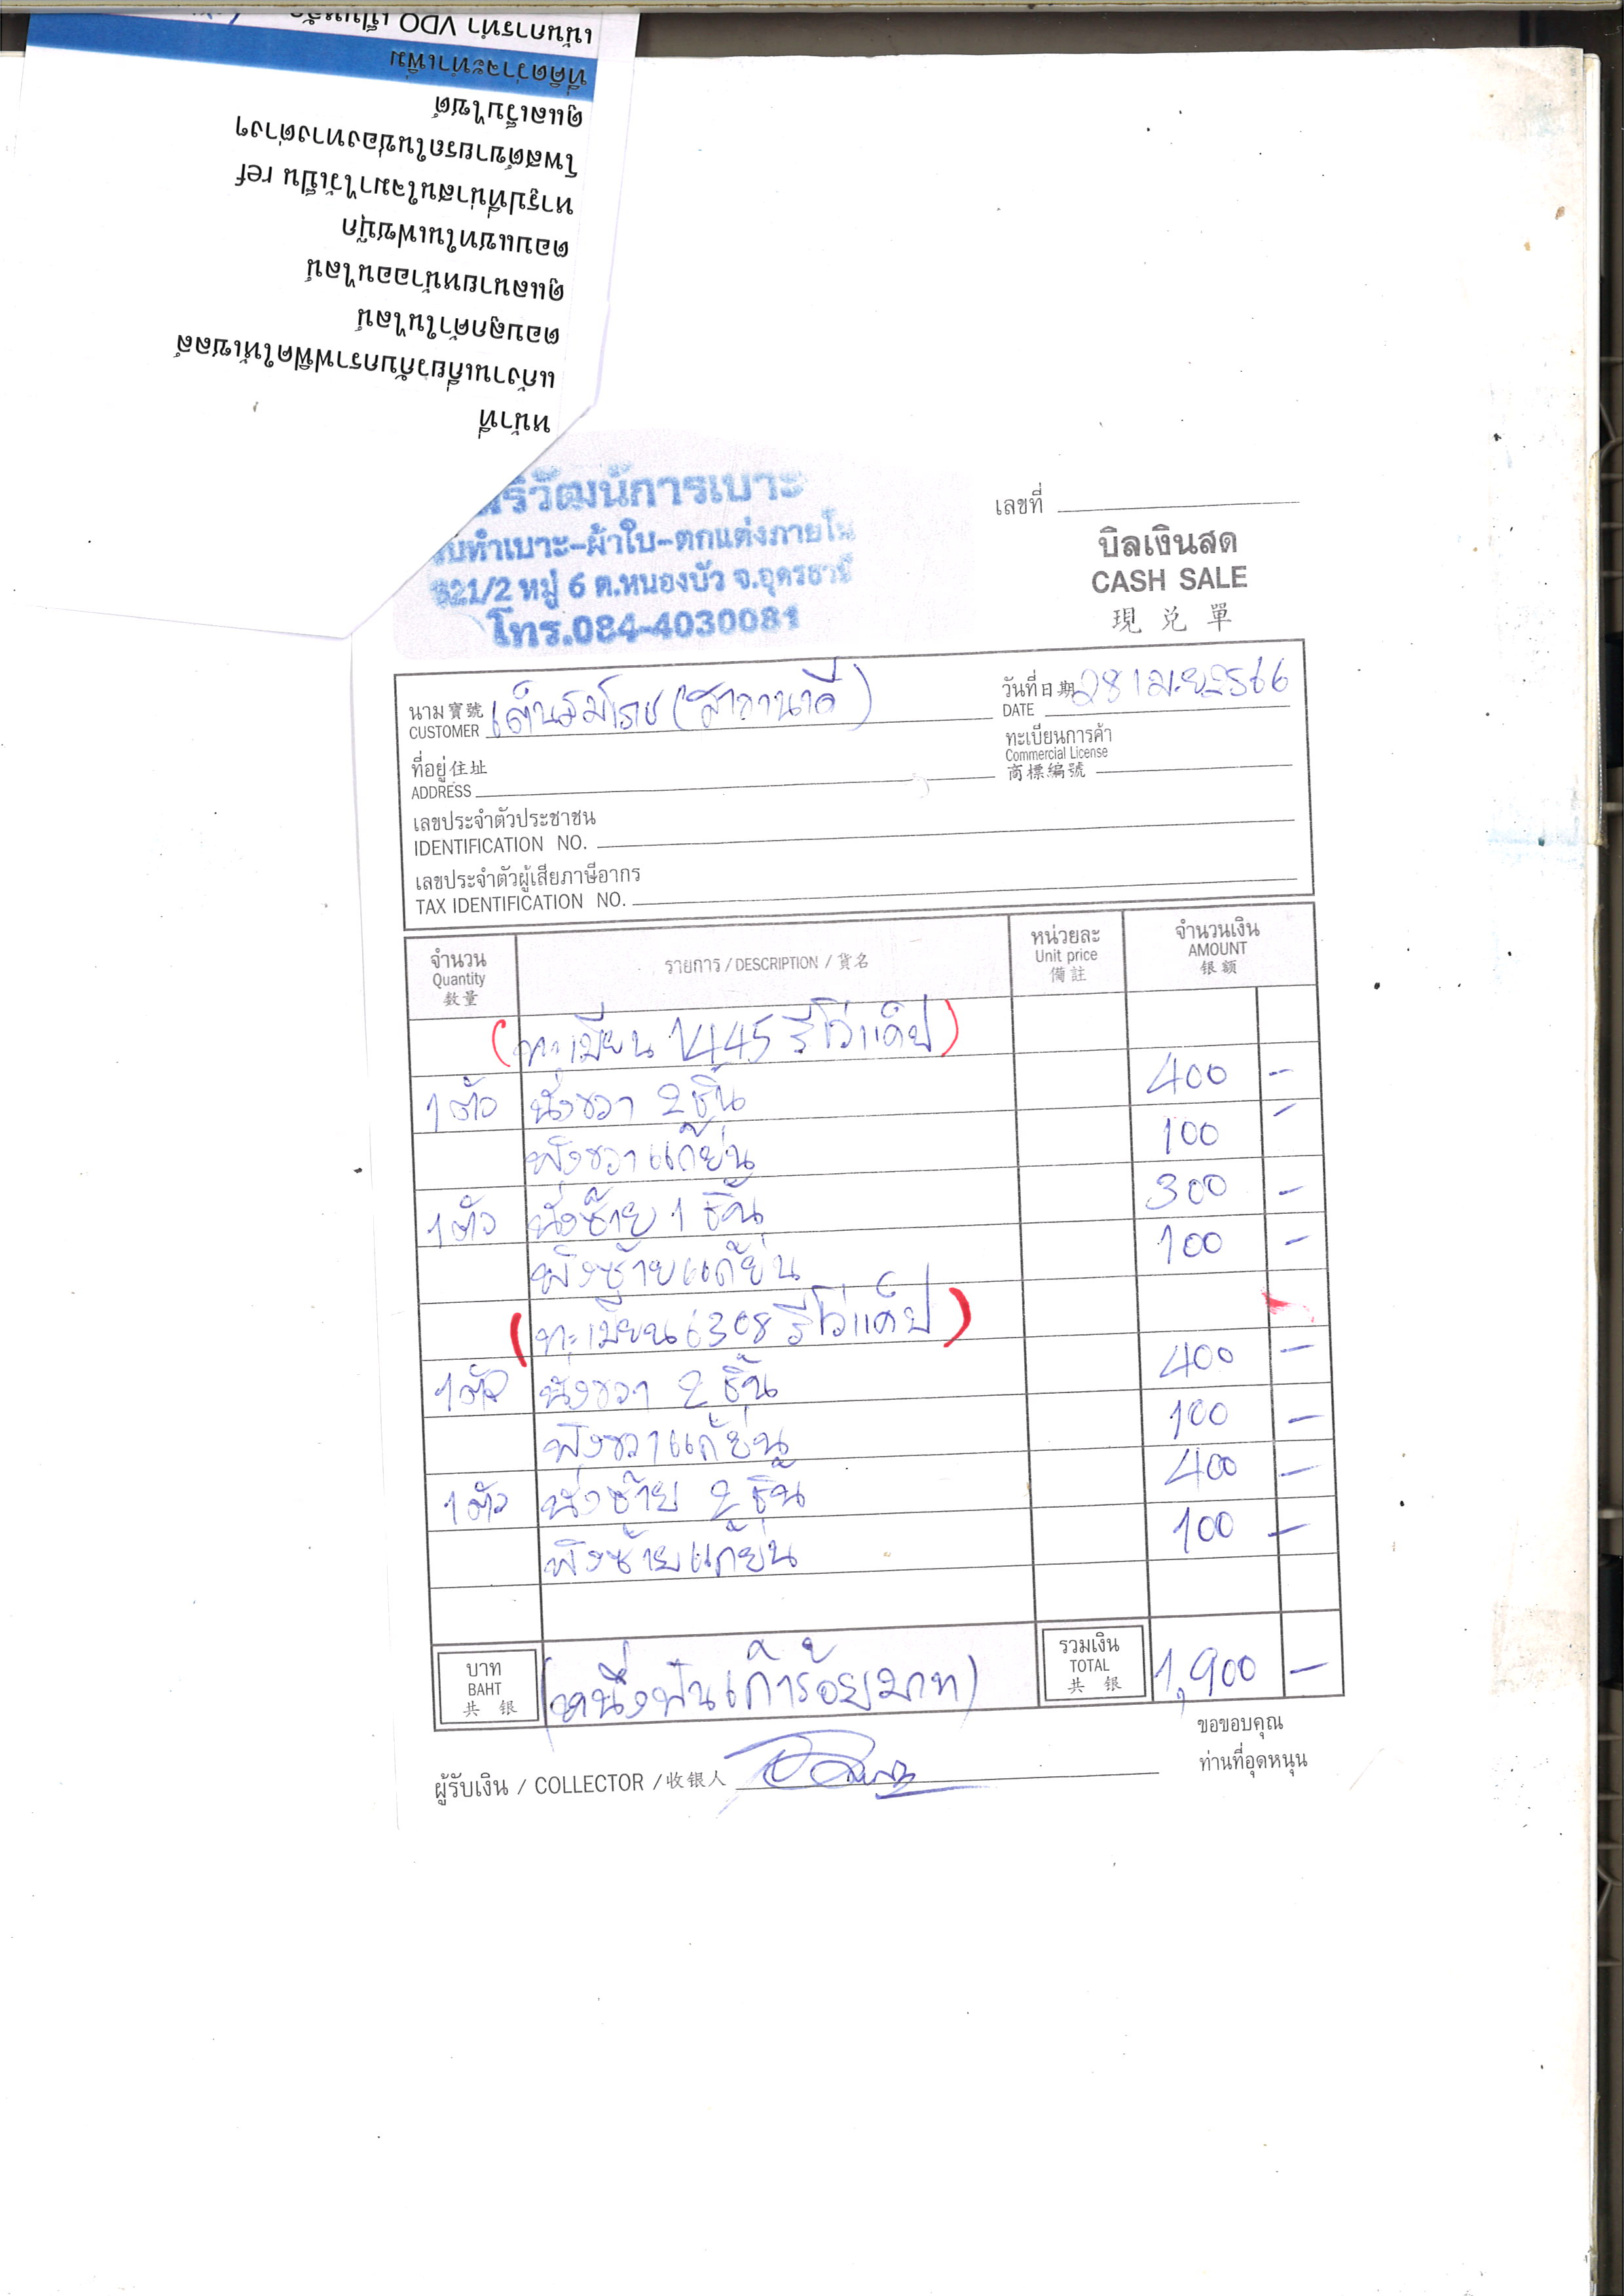 เน้นการทำ VDO เป็นหลัก
ที่คิดว่าจะทำเพิ่ม
ดูแลเว็บไซต์
โพสต์ขายรถในช่องทางต่างๆ
หารูปที่น่าสนใจมาไว้เป็น ref
ตอบแชทในเฟซบุ๊ก
ดูแลนายหน้าออนไลน์
ตอบลูกค้าในไลน์
แก้งานเกี่ยวกับกราฟฟิคให้เซลล์
หน้าที่
ริวัฒน์การเบาะ
บทำเบาะ-ผ้าใบ-ตกแต่งภายใน
321/2 หมู่ 6 ต.หนองบัว จ.อุดรธานี
โทร.084-4030081
เลขที่
บิลเงินสด
CASH SALE
現 兑 單
นาม 寶號
CUSTOMER
(สาขานาดี)
วันที่ 日期 28 เม.ย. 2566
DATE
ที่อยู่ 住址
ADDRESS
ทะเบียนการค้า
Commercial License
商標編號
เลขประจำตัวประชาชน
IDENTIFICATION NO.
เลขประจำตัวผู้เสียภาษีอากร
TAX IDENTIFICATION NO.
จำนวน
Quantity
数量
รายการ / DESCRIPTION / 貨名
หน่วยละ
Unit price
備註
จำนวนเงิน
AMOUNT
银额
(ทะเบียน 1445 รีโว่แค็ป)
1 ตัว นั่งขวา 2 ชิ้น 400 -
พิงขวาแก้ย่น 100 -
1 ตัว นั่งซ้าย 1 ชิ้น 300 -
พิงซ้ายแก้ย่น 100 -
(ทะเบียน 6308 รีโว่แค็ป)
1 ตัว นั่งขวา 2 ชิ้น 400 -
พิงขวาแก้ย่น 100 -
1 ตัว นั่งซ้าย 2 ชิ้น 400 -
พิงซ้ายแก้ย่น 100 -
บาท
BAHT
共 银
(หนึ่งพันเก้าร้อยบาท)
รวมเงิน
TOTAL
共 银
1,900 -
ขอขอบคุณ
ท่านที่อุดหนุน
ผู้รับเงิน / COLLECTOR / 收银人